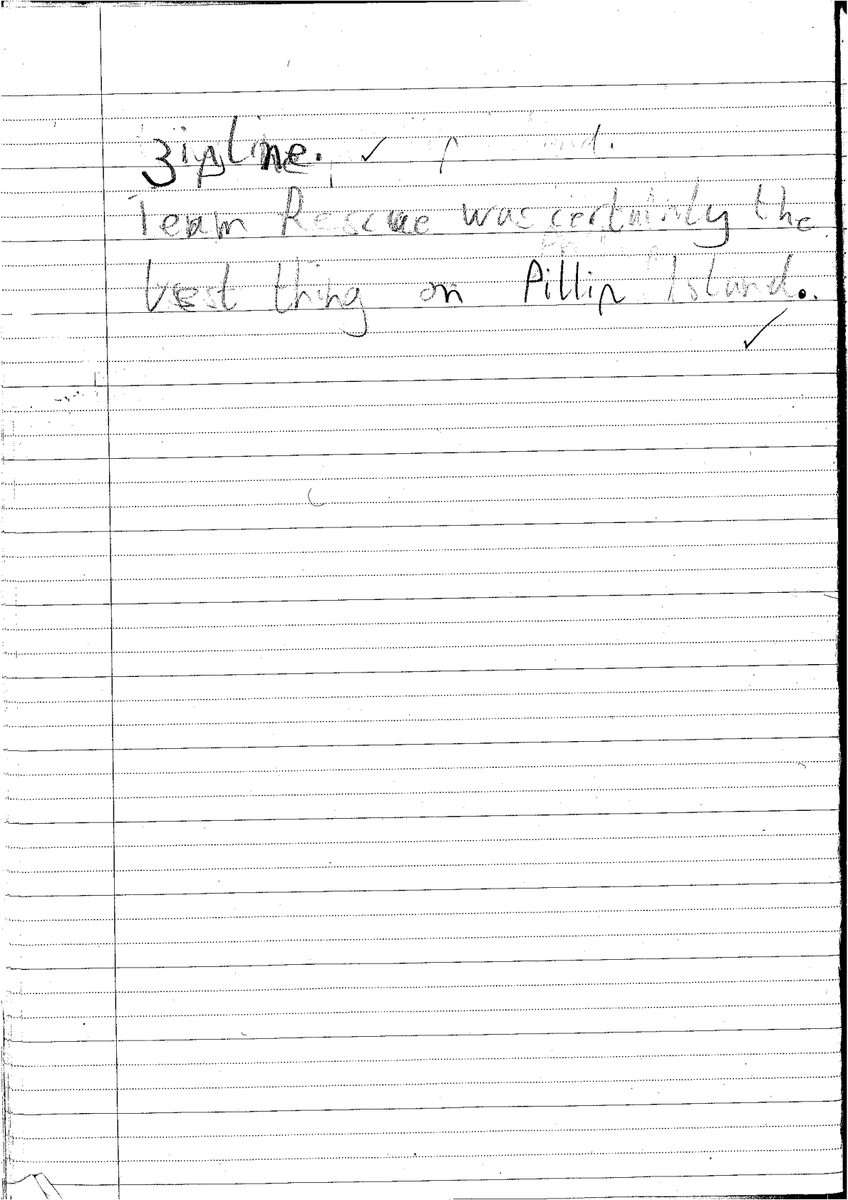 zipline.
Team Rescue was certainly the
best thing on Pillip Island.